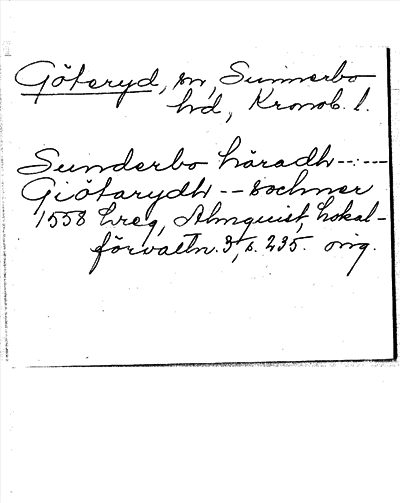 Göteryd, sn, Sunnerbo
hd, Kronob. l.
Sunderbo häradh --:---
Giötarydh -- sochner
1558 hreg, Almquist, Lokal-
förvaltn. 3, s. 235. orig.